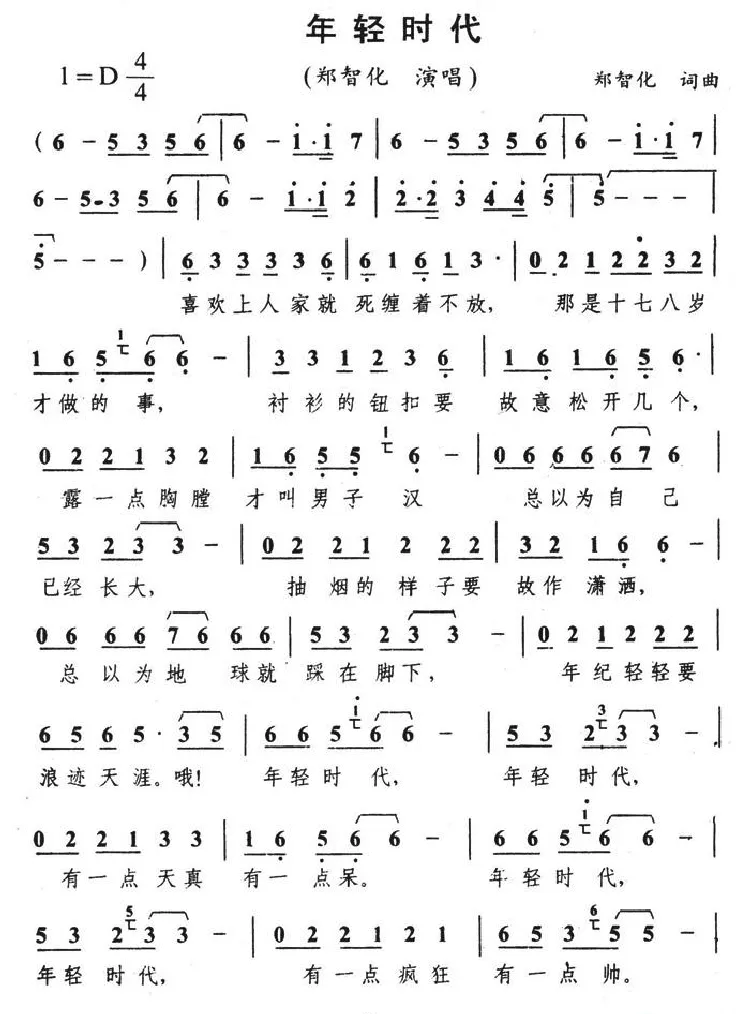 年轻时代
1=D 4/4 (郑智化 演唱) 郑智化 词曲
(6 - 5 3 5 6 | 6 - i · i 7 | 6 - 5 3 5 6 | 6 - i · i 7 |
6 - 5 · 3 5 6 | 6 - i · i 2 | 2 · 2 3 4 4 5 | 5 - - - |
5 - - - ) | 6 3 3 3 3 3 6 | 6 1 6 1 3 · | 0 2 1 2 2 3 2 |
喜欢上人家就 死缠着不放, 那是十七八岁
1 6 5 1 6 6 - | 3 3 1 2 3 6 | 1 6 1 6 5 6 · |
才做的 事, 衬衫的钮扣要 故意松开几个,
0 2 2 2 1 3 2 | 1 6 5 5 1 6 - | 0 6 6 6 6 6 7 6 |
露一点胸膛 才叫男子 汉 总以为自 己
5 3 2 3 3 - | 0 2 2 2 1 2 2 2 | 3 2 1 6 6 - |
已经长大, 抽烟的样子要 故作 潇洒,
0 6 6 6 7 6 6 6 | 5 3 2 3 3 - | 0 2 1 2 2 2 |
总 以为地 球就 踩在脚下, 年纪轻轻要
6 5 6 5 · 3 5 | 6 6 5 i 6 6 - | 5 3 2 3 3 3 - |
浪迹天涯。哦! 年轻时 代, 年轻 时代,
0 2 2 2 1 3 3 | 1 6 5 6 6 - | 6 6 5 i 6 6 - |
有一点天真 有一 点呆。 年轻时代,
5 3 2 5 3 3 - | 0 2 2 1 2 1 2 1 | 6 5 3 6 5 5 - |
年轻 时代, 有一点疯狂 有一点 帅。